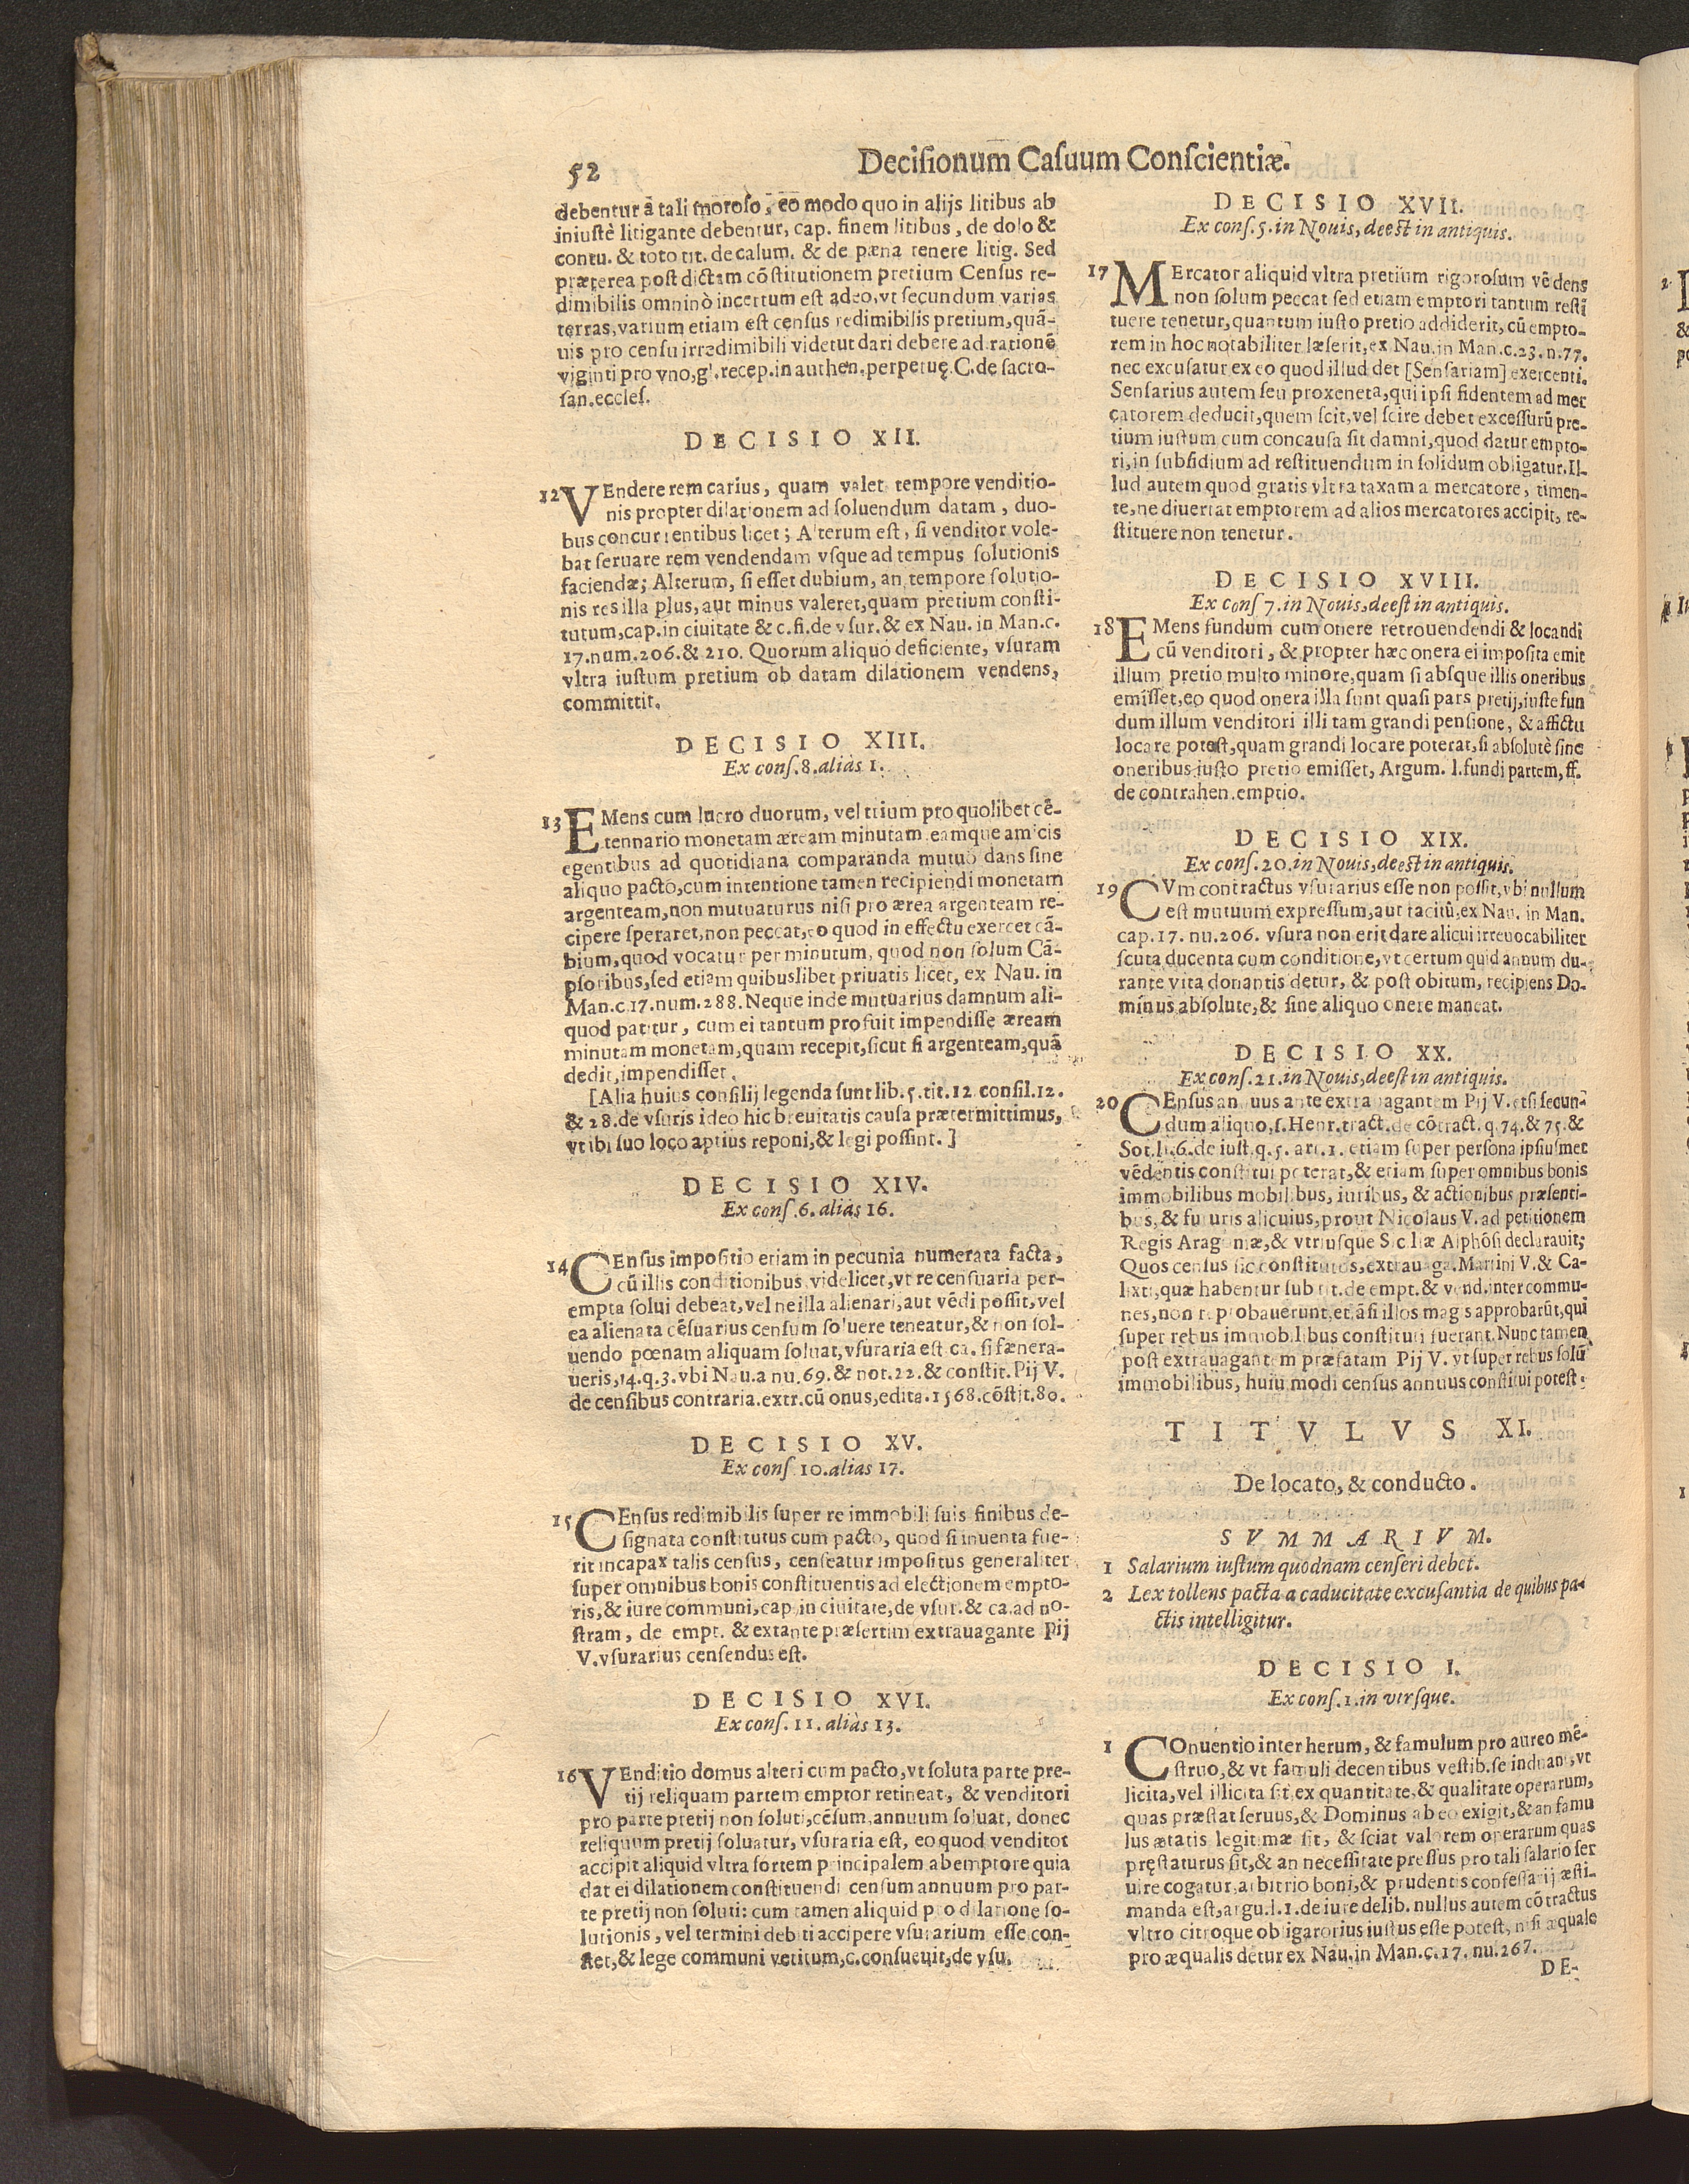 52
Decisionum Casuum Conscientiæ.
debentur á tali moroso, eo modo quo in alijs litibus ab
iniustè litigante debentur, cap. finem litibus, de dolo &
contu. & toto tit. de calum. & de pæna tenere litig. Sed
præterea post dictam cōstitutionem pretium Census re-
dimibilis omninò incertum est adeo, vt secundum varias
terras, varium etiam est census redimibilis pretium, quā-
uis pro censu irredimibili videtut dari debere ad rationē
viginti pro vno, gl. recep. in authen. perpetuę. C. de sacro-
san. eccles.
DECISIO XII.
12 VEndere rem carius, quam valet tempore venditio-
nis propter dilationem ad soluendum datam, duo-
bus concurrentibus licet; Alterum est, si venditor vole-
bat seruare rem vendendam vsque ad tempus solutionis
faciendæ; Alterum, si esset dubium, an tempore solutio-
nis res illa plus, aut minus valeret, quam pretium consti-
tutum, cap. in ciuitate & c. fi. de vsur. & ex Nau. in Man. c.
17. num. 206. & 210. Quorum aliquo deficiente, vsuram
vltra iustum pretium ob datam dilationem vendens,
committit.
DECISIO XIII.
Ex cons. 8. aliàs 1.
13 EMens cum lucro duorum, vel trium pro quolibet cē-
tennario monetam æream minutam eamque amicis
egentibus ad quotidiana comparanda mutuò dans sine
aliquo pacto, cum intentione tamen recipiendi monetam
argenteam, non mutuaturus nisi pro ærea argenteam re-
cipere speraret, non peccat, eo quod in effectu exercet cā-
bium, quod vocatur per minutum, quod non solum Cā-
psoribus, sed etiam quibuslibet priuatis licet, ex Nau. in
Man. c. 17. num. 288. Neque inde mutuarius damnum ali-
quod patitur, cum ei tantum profuit impendisse æream
minutam monetam, quam recepit, sicut si argenteam, quā
dedit, impendisset.
[Alia huius consilij legenda sunt lib. 5. tit. 12 consil. 12.
& 28. de vsuris ideo hic breuitatis causa prætermittimus,
vt ibi suo loco aptius reponi, & legi possint. ]
DECISIO XIV.
Ex cons. 6. aliàs 16.
14 CEnsus impositio etiam in pecunia numerata facta,
cū illis conditionibus videlicet, vt re censuaria per-
empta solui debeat, vel ne illa alienari, aut vēdi possit, vel
ea alienata cēsuarius censum soluere teneatur, & non sol-
uendo pœnam aliquam soluat, vsuraria est ca. si fænera-
ueris, 14. q. 3. vbi Nau. a nu. 69. & not. 22. & constit. Pij V.
de censibus contraria. extr. cū onus, edita. 1568. cōstit. 80.
DECISIO XV.
Ex cons. 10. alias 17.
15 CEnsus redimibilis super re immobili suis finibus de-
signata constitutus cum pacto, quod si inuenta fue-
rit incapax talis census, censeatur impositus generaliter
super omnibus bonis constituentis ad electionem empto-
ris, & iure communi, cap. in ciuitate, de vsur. & ca. ad no-
stram, de empt. & extante præsertim extrauagante Pij
V. vsurarius censendus est.
DECISIO XVI.
Ex cons. 11. aliàs 13.
16 VEnditio domus alteri cum pacto, vt soluta parte pre-
tij reliquam partem emptor retineat, & venditori
pro parte pretij non soluti, cēsum, annuum soluat, donec
reliquum pretij soluatur, vsuraria est, eo quod venditor
accipit aliquid vltra sortem principalem ab emptore quia
dat ei dilationem constituendi censum annuum pro par-
te pretij non soluti: cum tamen aliquid pro dilatione so-
lutionis, vel termini debiti accipere vsurarium esse con-
stet, & lege communi vetitum, c. consueuit, de vsu.
DECISIO XVII.
Ex cons. 5. in Nouis, deest in antiquis.
17 MErcator aliquid vltra pretium rigorosum vēdens
non solum peccat sed etiam emptori tantum resti
tuere tenetur, quantum iusto pretio addiderit, cū empto-
rem in hoc notabiliter læserit, ex Nau. in Man. c. 23. n. 77.
nec excusatur ex eo quod illud det [Sensariam] exercenti.
Sensarius autem seu proxeneta, qui ipsi fidentem ad mer
catorem deducit, quem scit, vel scire debet excessurū pre-
tium iustum cum concausa sit damni, quod datur empto-
ri, in subsidium ad restituendum in solidum obligatur. Il-
lud autem quod gratis vltra taxam a mercatore, timen-
te, ne diuertat emptorem ad alios mercatores accipit, re-
stituere non tenetur.
DECISIO XVIII.
Ex cons 7. in Nouis, deest in antiquis.
18 EMens fundum cum onere retrouendendi & locandi
cū venditori, & propter hæc onera ei imposita emit
illum pretio multo minore, quam si absque illis oneribus
emisset, eo quod onera illa sunt quasi pars pretij, iuste fun
dum illum venditori illi tam grandi pensione, & affictu
locare potest, quam grandi locare poterat, si absolutè sine
oneribus iusto pretio emisset, Argum. l. fundi partem, ff.
de contrahen. emptio.
DECISIO XIX.
Ex cons. 20. in Nouis, deest in antiquis.
19 CVm contractus vsurarius esse non possit, vbi nullum
est mutuum expressum, aut tacitū, ex Nau. in Man.
cap. 17. nu. 206. vsura non erit dare alicui irreuocabiliter
scuta ducenta cum conditione, vt certum quid annum du-
rante vita donantis detur, & post obitum, recipiens Do-
minus absolute, & sine aliquo onere maneat.
DECISIO XX.
Ex cons. 21. in Nouis, deest in antiquis.
20 CEnsus annuus ante extrauagantem Pij V. etsi secun-
dum aliquos. Henr. tract. de cōtract. q. 74. & 75. &
Sot. li. 6. de iust. q. 5. art. 1. etiam super persona ipsiusmet
vēdentis constitui poterat, & etiam super omnibus bonis
immobilibus mobilibus, iuribus, & actionibus præsenti-
bus, & futuris alicuius, prout Nicolaus V. ad petitionem
Regis Aragoniæ, & vtriusque Siciliæ Alphōsi declarauit;
Quos census sic constitutos, extrauaga. Martini V. & Ca-
lixti, quæ habentur sub tit. de empt. & vend. inter commu-
nes, non reprobauerunt, etiāsi illos magis approbarūt, qui
super rebus immobilibus constituti fuerant. Nunc tamen
post extrauagantem præfatam Pij V. vt super rebus solū
immobilibus, huiusmodi census annuus constitui potest.
TITVLVS XI.
De locato, & conducto.
SVMMARIVM.
1 Salarium iustum quodnam censeri debet.
2 Lex tollens pacta a caducitate excusantia de quibus pa-
ctis intelligitur.
DECISIO I.
Ex cons. 1. in vtrsque.
1 COnuentio inter herum, & famulum pro aureo mē-
struo, & vt famuli decentibus vestib. se induant, vt
licita, vel illicita sit, ex quantitate, & qualitate operarum,
quas præstat seruus, & Dominus ab eo exigit, & an famu
lus ætatis legitimæ sit, & sciat valorem operarum quas
pręstaturus sit, & an necessitate pressus pro tali salario ser
uire cogatur, arbitrio boni, & prudentis confessarij æsti-
manda est, argu. l. 1. de iure delib. nullus autem cōtractus
vltro citroque obligatorius iustus esse potest, nisi æquale
pro æqualis detur ex Nau. in Man. c. 17. nu. 267.
DE-